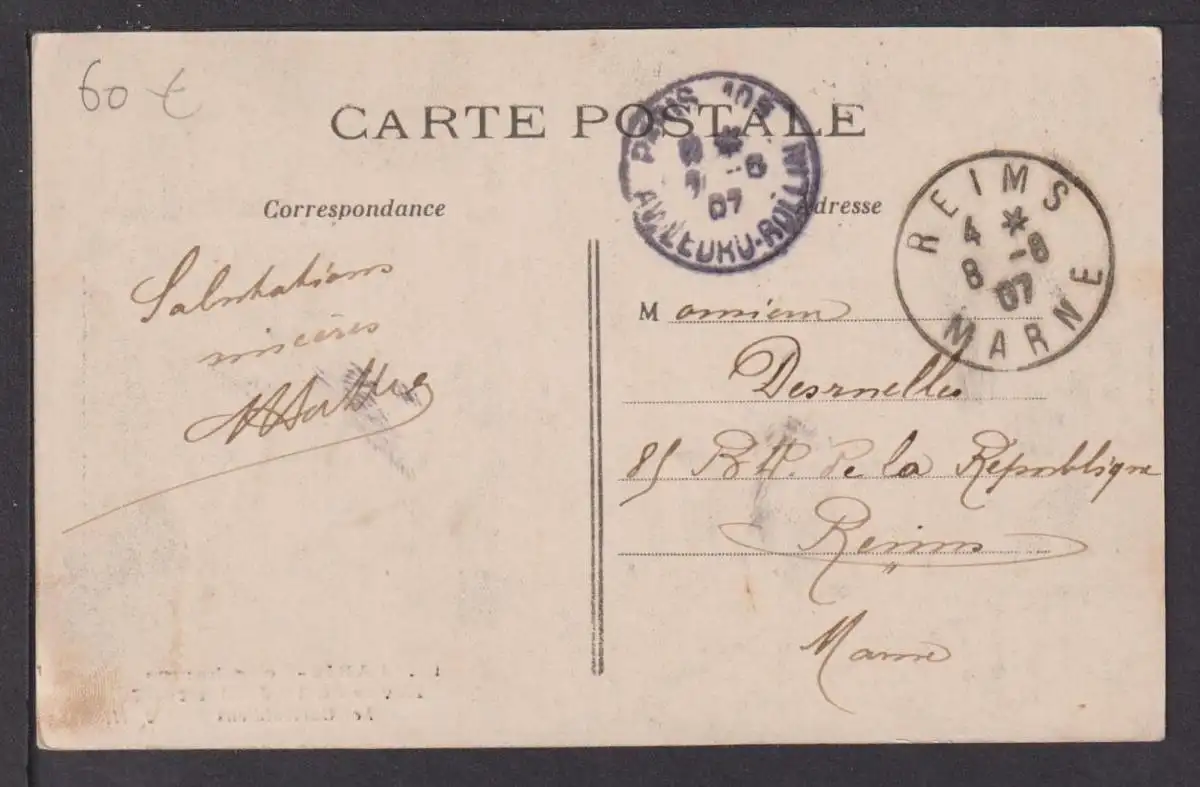 60 €
CARTE POSTALE
PARIS 105
* -8
07
AV. LEDRU-ROLLIN
Correspondance
Adresse
REIMS
4 *
8 -8
07
MARNE
Salutations
sincères
Monsieur
Desrnelles
85 Bd. de la République
Reims
Marne